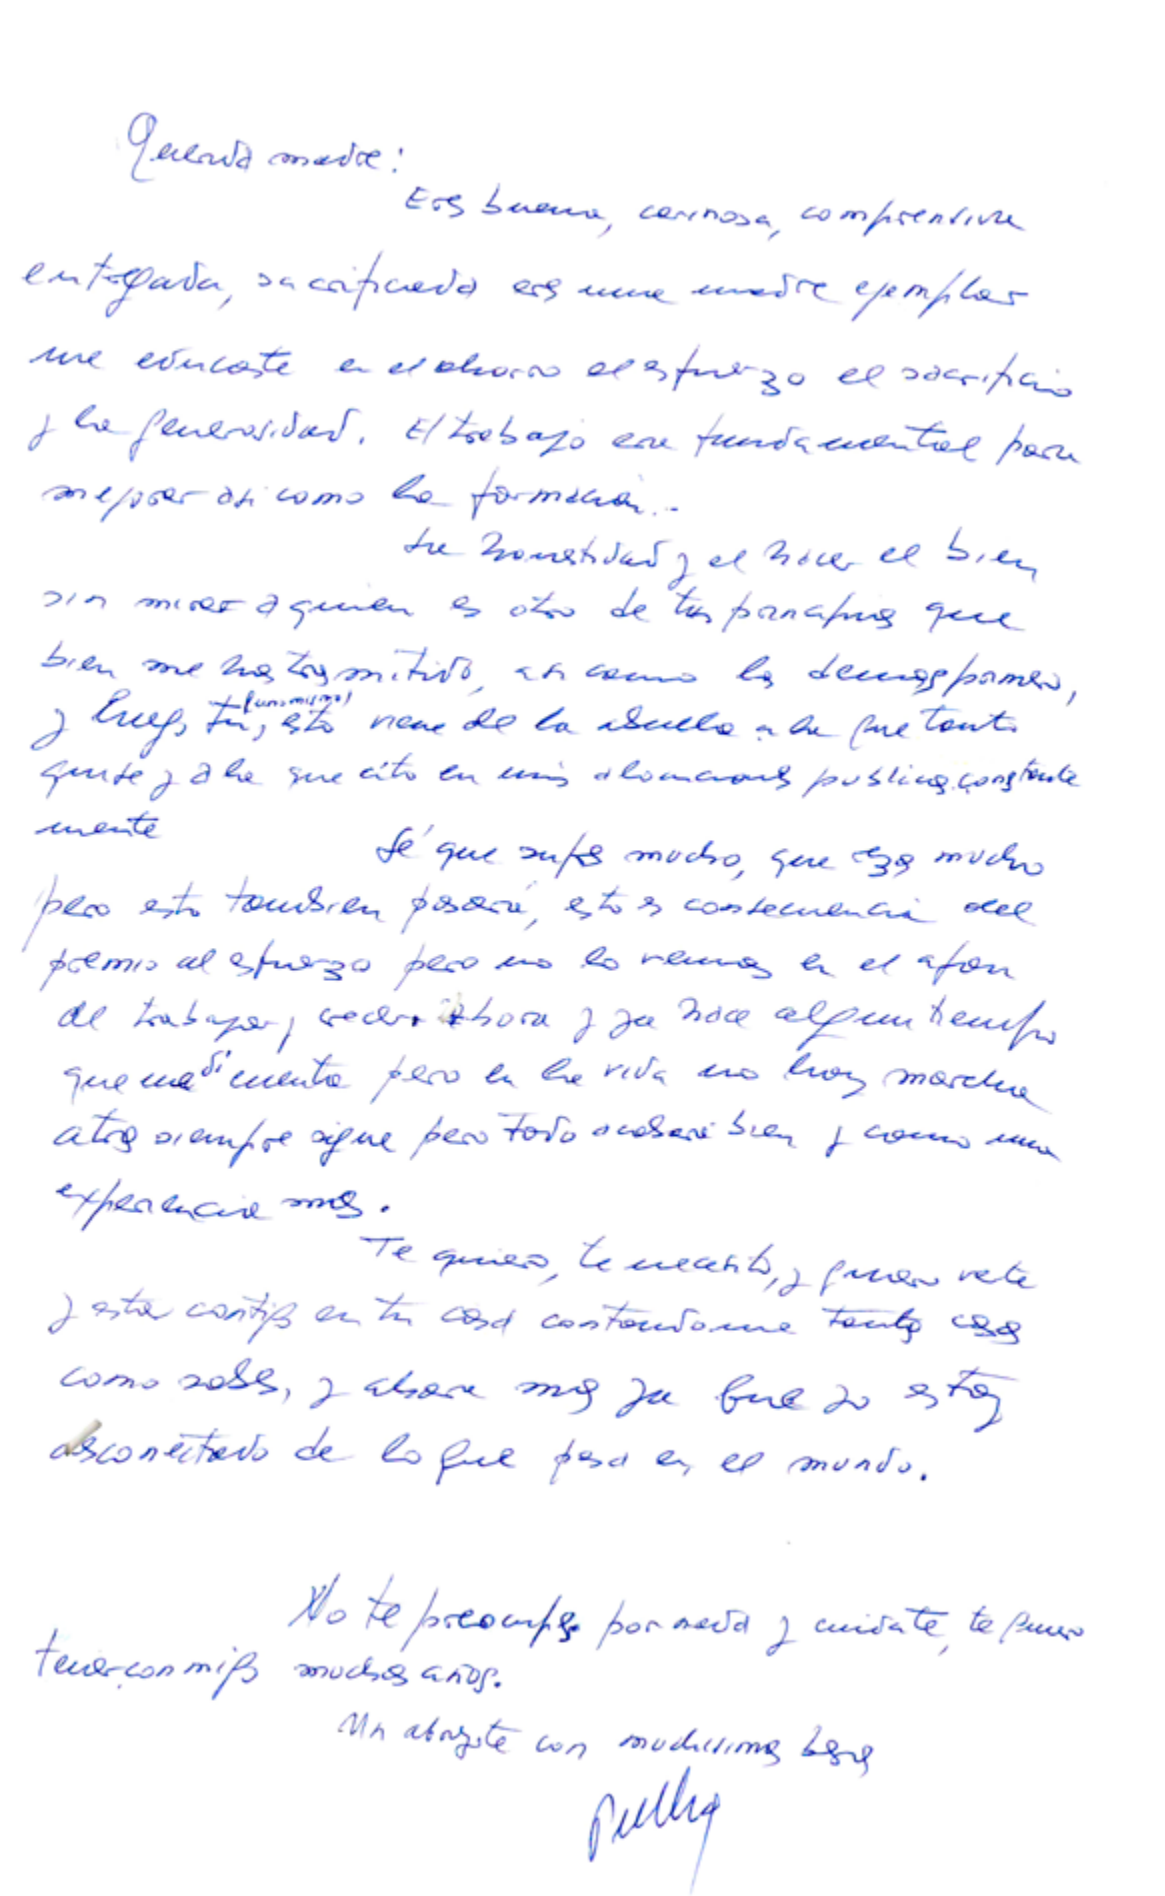 Querida madre:
Eres buena, cariñosa, comprensiva
entregada, sacrificada eres una madre ejemplar
me educaste en el ahorro el esfuerzo el sacrificio
y la generosidad. El trabajo era fundamental para
mejorar asi como la formación.-
La honestidad y el hacer el bien
sin mirar a quien es otro de tus principios que
bien me has trasmitido, asi como los demas primero,
y luego tu, (uno mismo) esto viene de la abuela a la que tanto
quise y a la que cito en mis alocuciones publicas constante
mente
Sé que sufres mucho, que rezas mucho
pero esto tambien pasará, esto es consecuencia del
premio al esfuerzo pero no lo vemos en el afan
de trabajar, crecer. Ahora y ya hace algun tiempo
que me di cuenta pero en la vida no hay marcha
atras siempre sigue pero todo acabará bien y como una
experiencia mas.
Te quiero, te necesito, y quiero verte
y estar contigo en tu casa contandome tantas cosas
como sabes, y ahora mas ya que yo estoy
desconectado de lo que pasa en el mundo.
No te preocupes por nada y cuidate, te quiero
tener conmigo muchos años.
Un abrazote con muchisimos besos